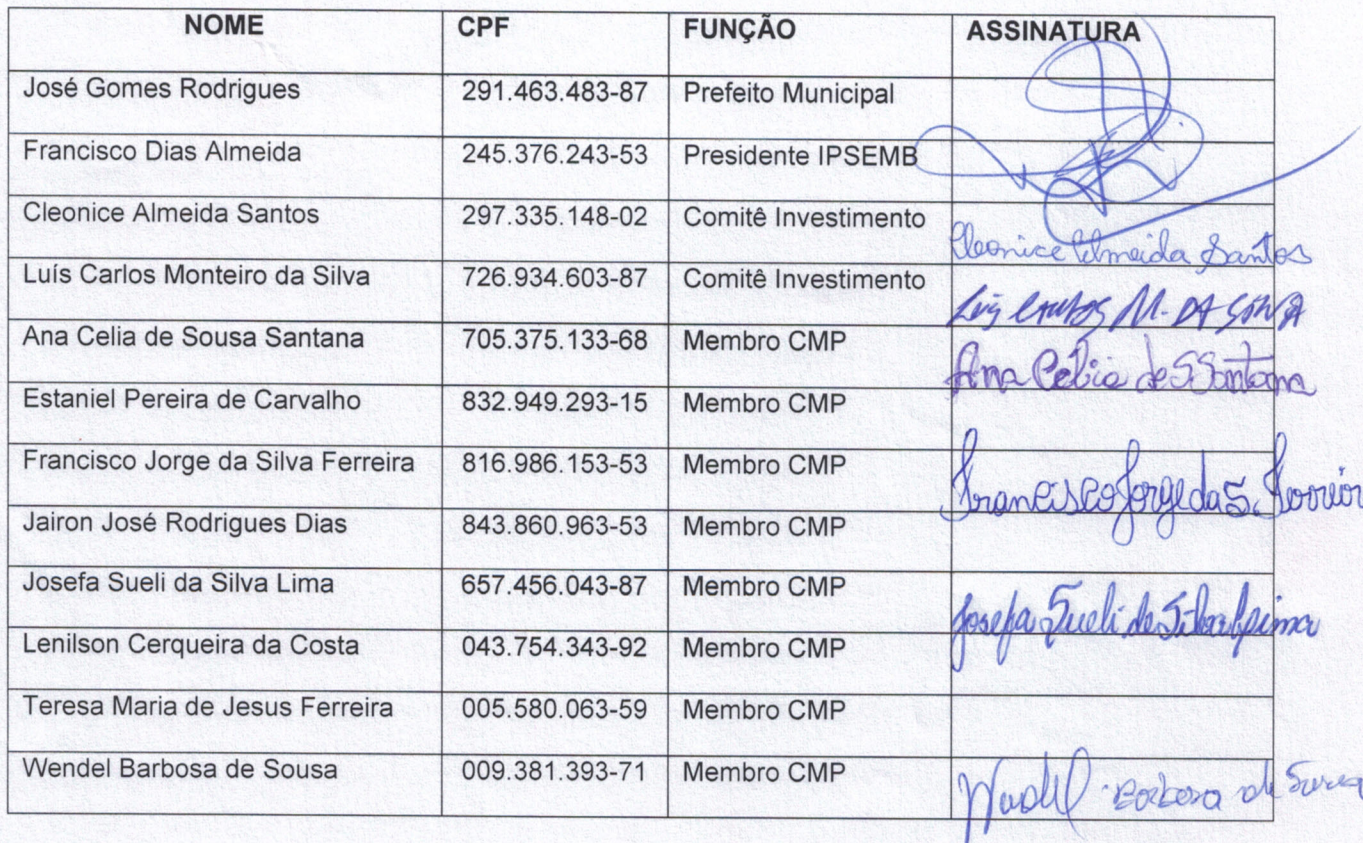 NOME CPF FUNÇÃO ASSINATURA
José Gomes Rodrigues 291.463.483-87 Prefeito Municipal
Francisco Dias Almeida 245.376.243-53 Presidente IPSEMB
Cleonice Almeida Santos 297.335.148-02 Comitê Investimento Cleonice Almeida Santos
Luís Carlos Monteiro da Silva 726.934.603-87 Comitê Investimento Luis Carlos M. DA SILVA
Ana Celia de Sousa Santana 705.375.133-68 Membro CMP Ana Célia de S Santana
Estaniel Pereira de Carvalho 832.949.293-15 Membro CMP
Francisco Jorge da Silva Ferreira 816.986.153-53 Membro CMP Francisco Jorge da S. Ferreir
Jairon José Rodrigues Dias 843.860.963-53 Membro CMP
Josefa Sueli da Silva Lima 657.456.043-87 Membro CMP Josefa Sueli da Silva Lima
Lenilson Cerqueira da Costa 043.754.343-92 Membro CMP
Teresa Maria de Jesus Ferreira 005.580.063-59 Membro CMP
Wendel Barbosa de Sousa 009.381.393-71 Membro CMP Wendel Barbosa de Sousa